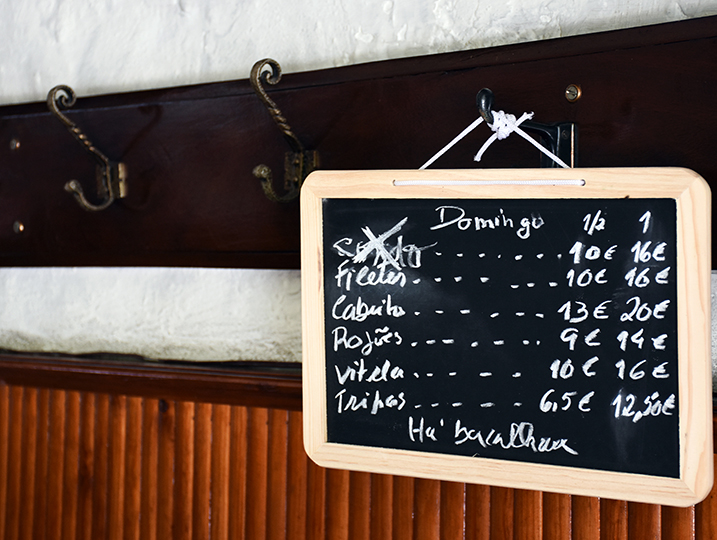 Domingo 1/2 1
10€ 16€
Filetes. - - . . - - 10€ 16€
Cabrito. - - . - - 13€ 20€
Rojões . . - - - . - - 9€ 14€
Vitela . . - - - - 10€ 16€
Tripas . - - - - 6,5€ 12,50€
Há bacalhau